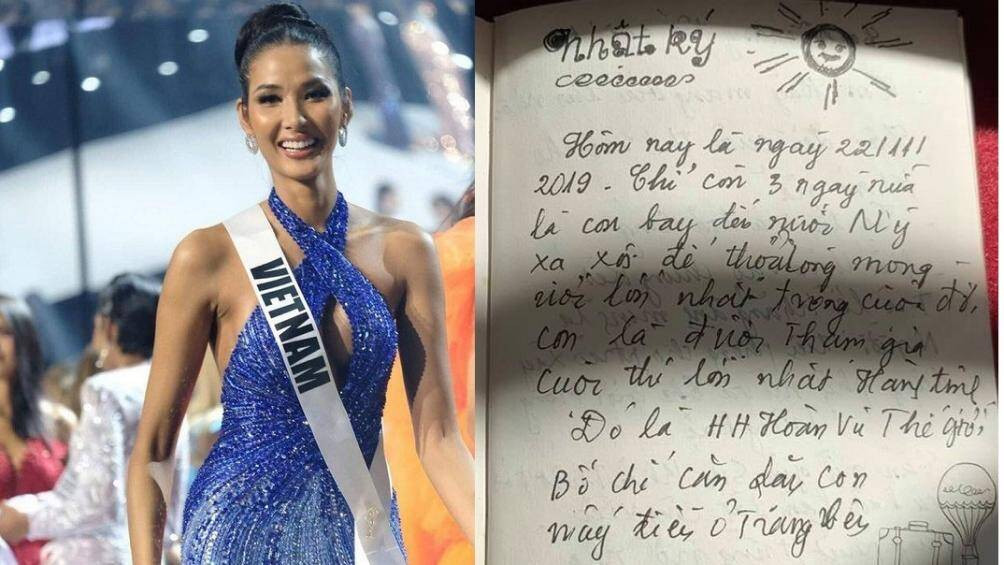 VIETNAM
Nhật ký
Hôm nay là ngày 22/11/
2019. Chỉ còn 3 ngày nữa
là con bay đến nước Mỹ
xa xôi để thỏa lòng mong
ước lớn nhất trong cuộc đời,
con là được Tham gia
cuộc thi lớn nhất Hành tinh
Đó là HH Hoàn Vũ Thế giới,
Bố chỉ cần dặn con
mấy điều ở Trang bên